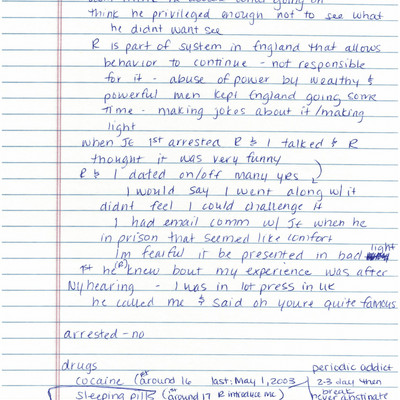 think he privileged enough not to see what
he didnt want see
R is part of system in England that allows
behavior to continue - not responsible
for it - abuse of power by wealthy &
powerful men kept England going some
time - making jokes about it/making
light
when JE 1st arrested R & I talked & R
thought it was very funny
R & I dated on/off many yes
I would say I went along w/it
didnt feel I could challenge it
I had email comm w/ JE when he
in prison that seemed like comfort
Im fearful it be presented in bad light
1st he (R) knew bout my experience was after
NY hearing - I was in lot press in UK
he called me & said oh youre quite famous
arrested - no
drugs periodic addict
cocaine (around 16 last: May 1, 2003 2-3 day then break
sleeping pills (around 17 R introduce me) never abstinate